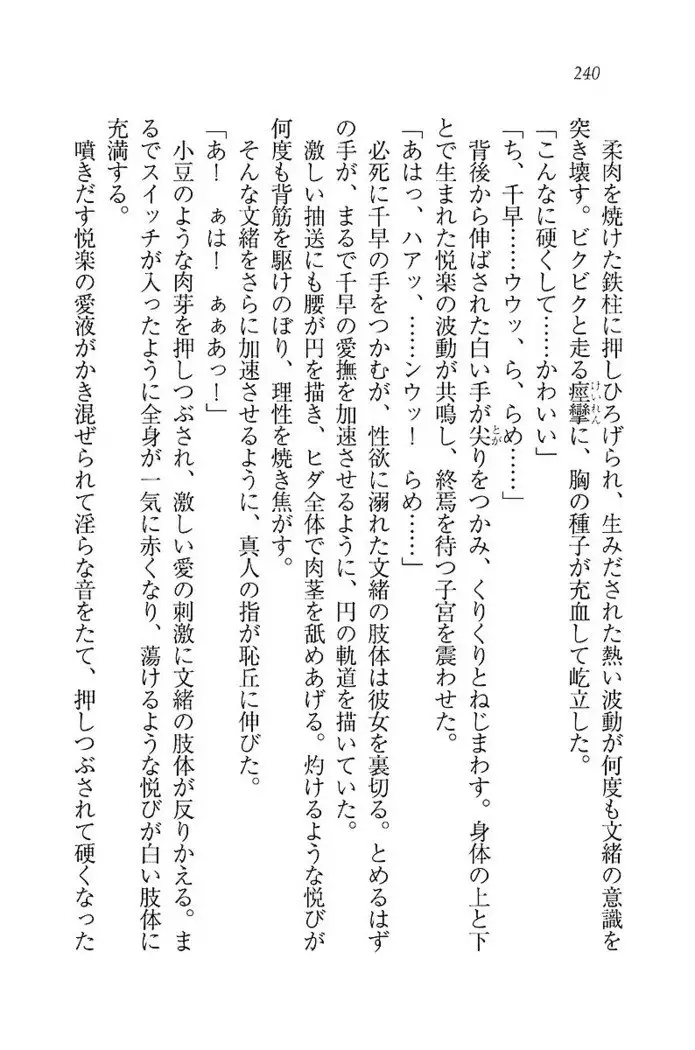 240
柔肉を焼けた鉄柱に押しひろげられ、生みだされた熱い波動が何度も文緒の意識を
突き壊す。ビクビクと走る痙攣に、胸の種子が充血して屹立した。
「こんなに硬くして……かわいい」
「ち、千早……ウウッ、ら、らめ……」
背後から伸ばされた白い手が尖りをつかみ、くりくりとねじまわす。身体の上と下
とで生まれた悦楽の波動が共鳴し、終焉を待つ子宮を震わせた。
「あはっ、ハアッ、……ンウッ！　らめ……」
必死に千早の手をつかむが、性欲に溺れた文緒の肢体は彼女を裏切る。とめるはず
の手が、まるで千早の愛撫を加速させるように、円の軌道を描いていた。
激しい抽送にも腰が円を描き、ヒダ全体で肉茎を舐めあげる。灼けるような悦びが
何度も背筋を駆けのぼり、理性を焼き焦がす。
そんな文緒をさらに加速させるように、真人の指が恥丘に伸びた。
「あ！　ぁは！　ぁぁあっ！」
小豆のような肉芽を押しつぶされ、激しい愛の刺激に文緒の肢体が反りかえる。ま
るでスイッチが入ったように全身が一気に赤くなり、蕩けるような悦びが白い肢体に
充満する。
噴きだす悦楽の愛液がかき混ぜられて淫らな音をたて、押しつぶされて硬くなった